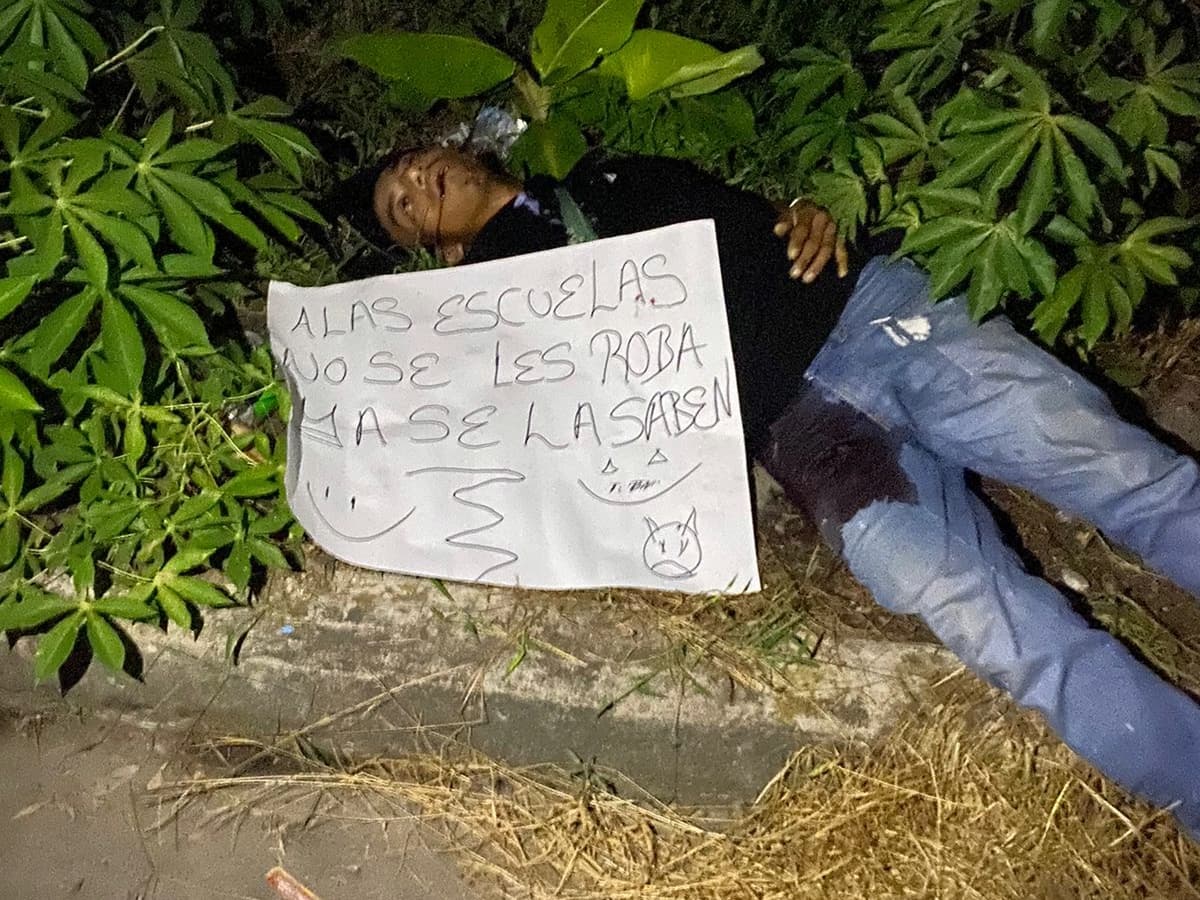 A LAS ESCUELAS
NO SE LES ROBA
YA SE LA SABEN